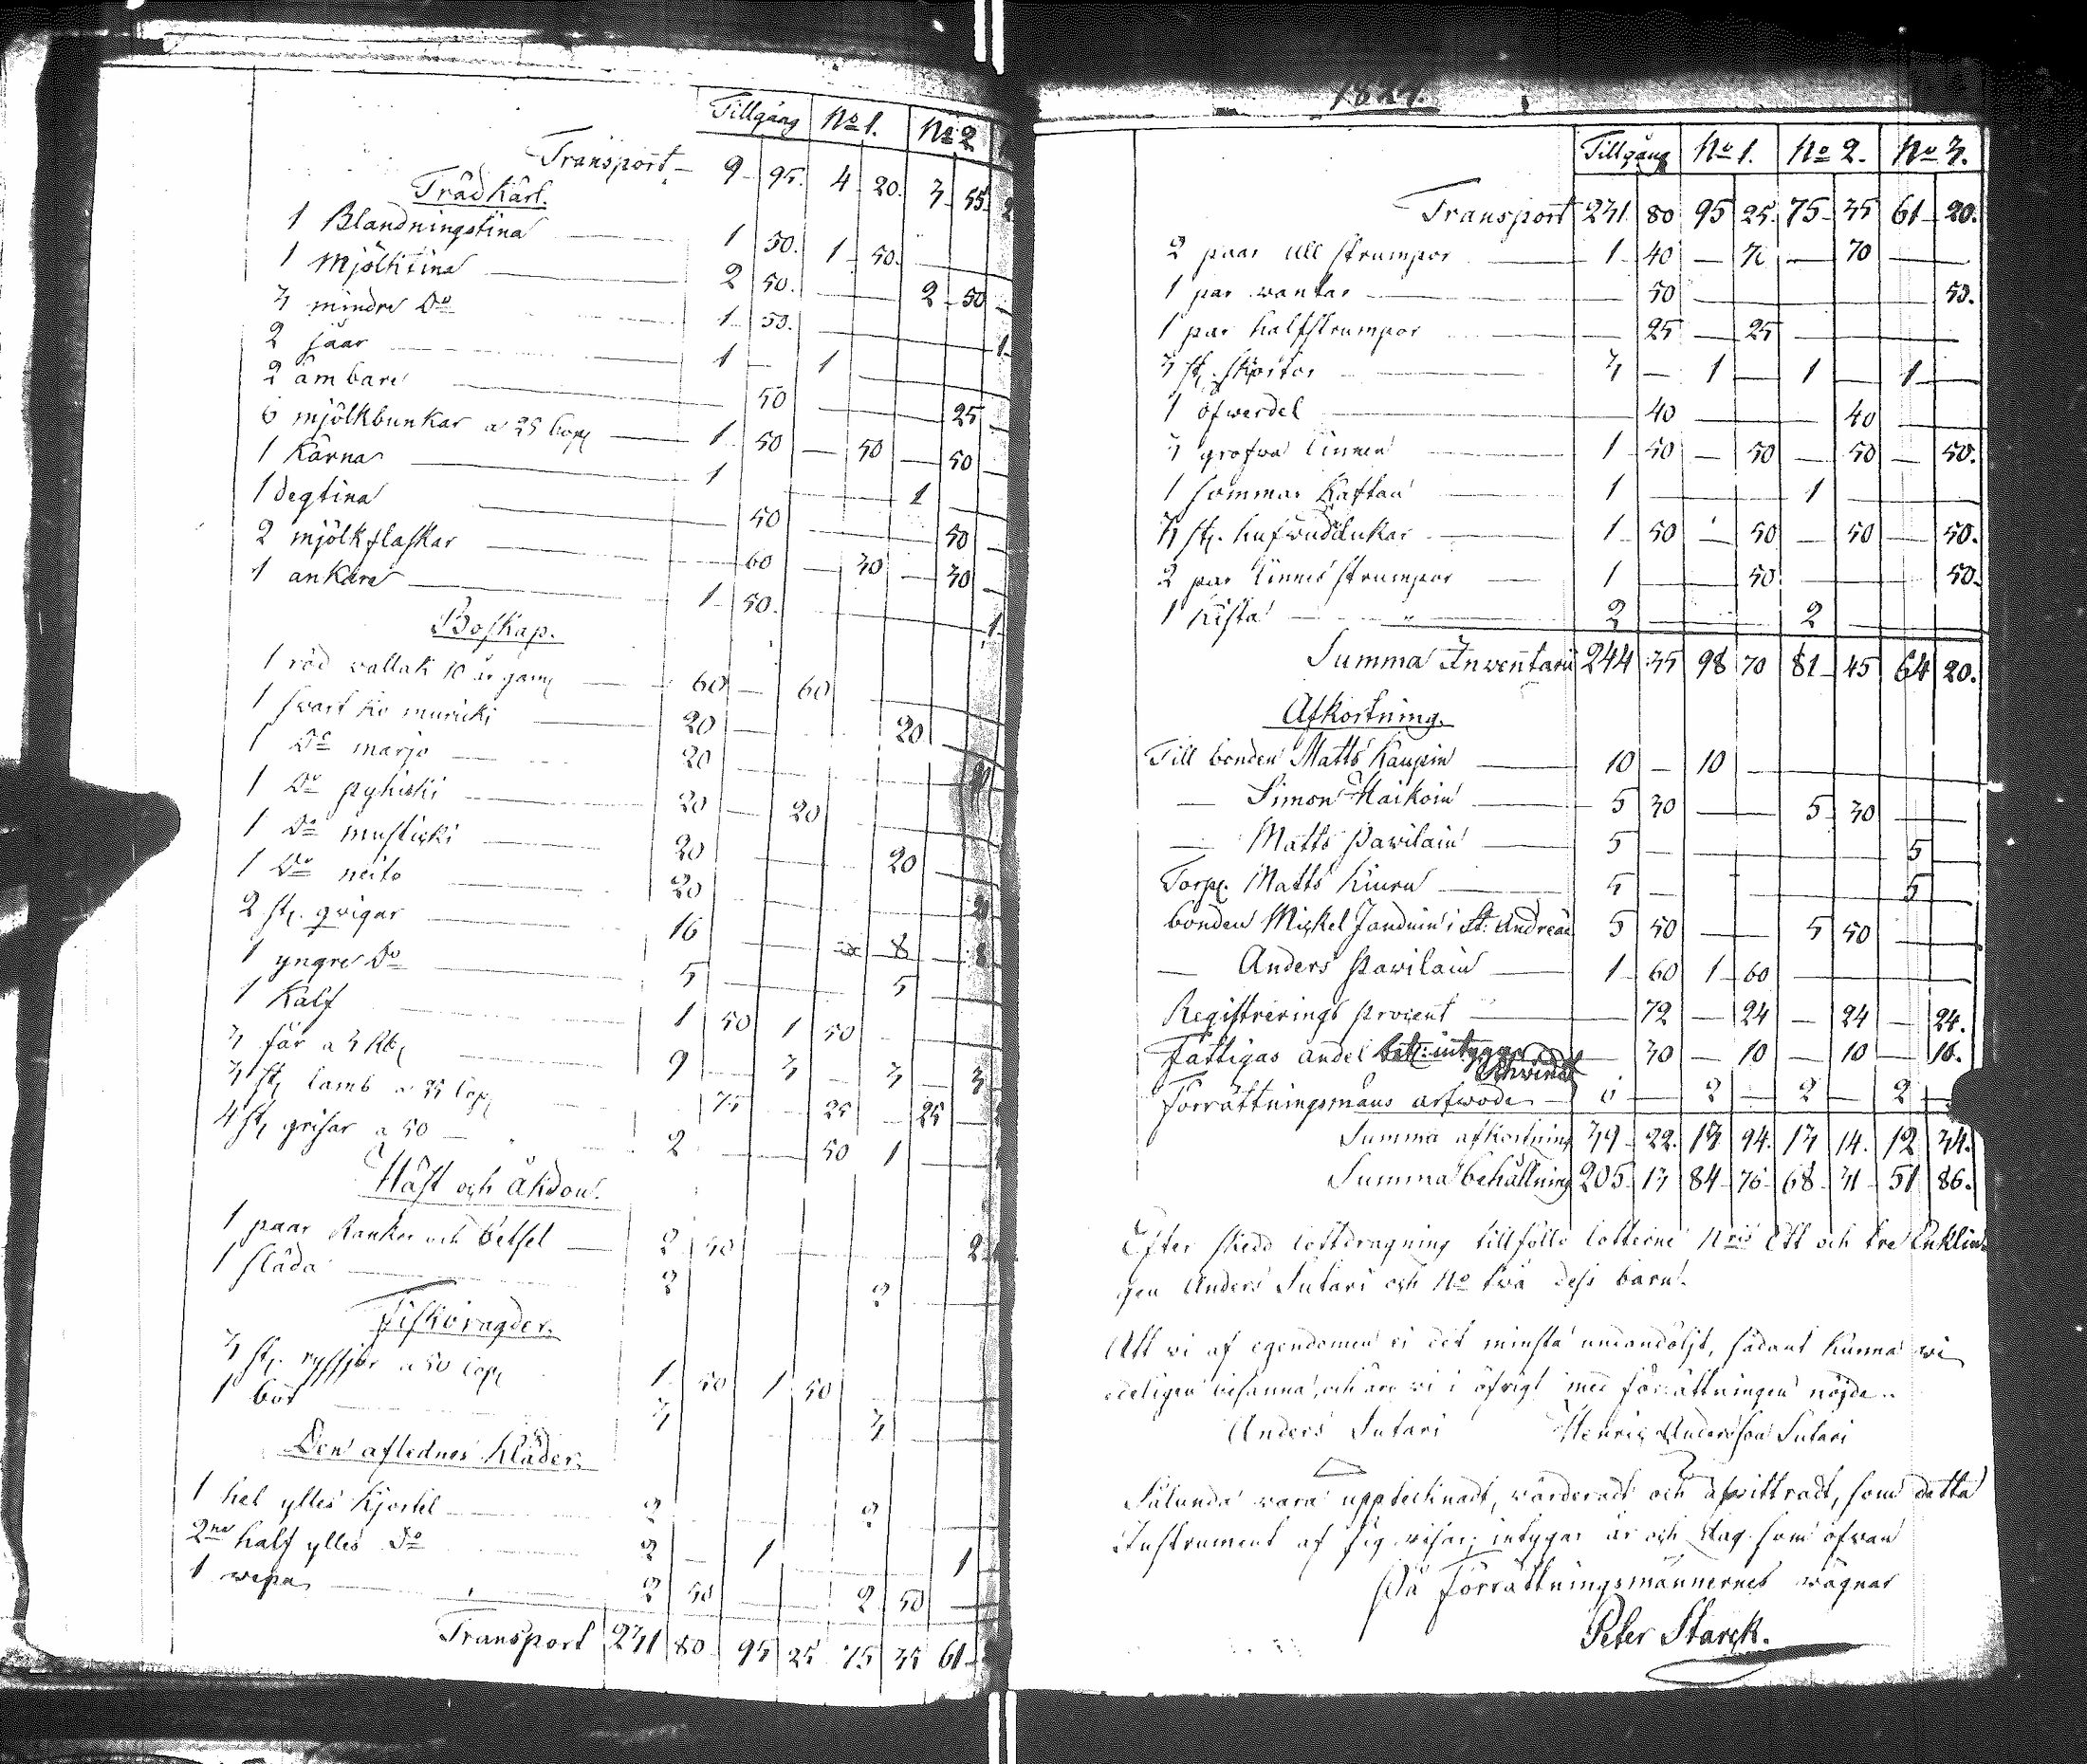 Tillgång No 1. No 2
Transport 9 95. 4 20. 3 55.
Trädkärl.
1 Blandningstina 1 50. 1 50.
1 Mjölktina 2 50. 2 50
3 mindre Do 1 50. 1
2 såar 1 1
2 ämbare 50 25
6 mjölkbunkar a 25 Cop 1 50 50 50
1 Kärna 1 1
1 degtina 50 50
2 mjölkflaskar 60 30 30
1 ankare 1 50. 1
Boskap.
1 röd vallak 10 år gam 60 60
1 svart ko muriki 20 20
1 Do marjo 20
1 Do pyhiki 20 20
1 Do mustikki 20 20
1 Do neito 20
2 st. qvigar 16 8
1 yngre Do 5 5
1 Kalf 1 50 1 50
3 får a 3 Rb 9 3 3 3
3 st lamb a 25 Cop 75 25 25
4 st grisar a 50 2 50 1
Häst och Åkdon.
1 paar Rankor och betsel 2 50 2
1 släda 2 2
Fiskeragder.
3 st. ryssjor a 50 Cop 1 50 1 50
1 båt 3 3
Den aflednes Kläder.
1 hel ylles Kjortel 2 2
2ne half ylles Do 2 1 1
1 wepa 2 50 2 50
Transport 231 80 95 25 75 35 61
1827.
Tillgång No 1. No 2. No 3.
Transport 231. 80 95 25. 75 35 61 20.
2 paar ull strumpor 1 40 70 70
1 par vantar 50 50.
1 par halfstrumpor 25 25
3 st. skjortor 3 1 1 1
1 öfwerdel 40 40
3 grofva linnen 1 50 50 50 50.
1 sommar Kaftan 1 1
3 st. hufvuddukar 1 50 50 50 50.
2 par linne strumpor 1 50. 50.
1 Kista 2 2
Summa Inventarii 244 35 98 70 81 45 64 20.
Afkortning.
Till bonden Matts Kaupin 10 10
Simon Haikoin 5 30 5 30
Matts Pavilain 5 5
Torp. Matts Kiuru 5 5
bonden Mickel Janduin i St: Andreæ 5 50 5 50
Anders Pavilain 1 60 1 60
Registrerings procent 72 24 24 24.
Fattigas andel 30 10 10 10.
Förrättningsmäns arfwode 6 2 2 2
Summa afkortning 39 22. 13 94. 13 14. 12 34.
Summa behållning 205 13 84 76 68 31 51 86.
Efter skedd lottdragning tillföllo lotterne Nris Ett och tre Enklin-
gen Anders Sutari och No två dess barn.
Att vi af egendomen ei det minsta undandöljt, sådant kunna vi
edeligen besanna, och äro vi i öfrigt med förrättningen nöjde.
Anders Sutari Henric Andersson Sutari
Sålunda vara upptecknadt, värderadt och afvittradt, som detta
Instrument af sig visar; intygar år och dag som ofvan
På Förrättningsmännernes vägnar
Peter Starck.